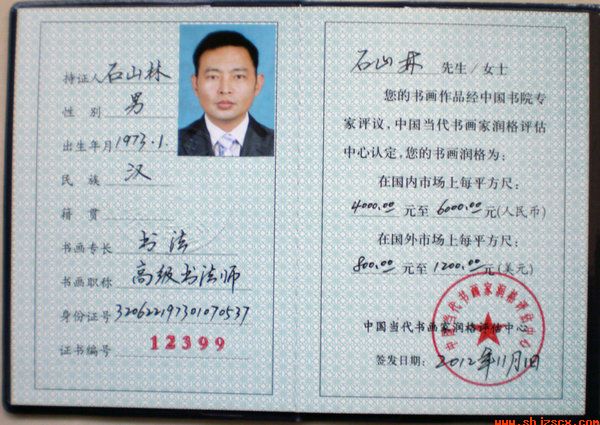 持证人 石山林
性别 男
出生年月 1973.1.
民族 汉
籍贯
书画专长 书法
书画职称 高级书法师
身份证号 320622197301070537
证书编号 12399
石山林 先生/女士
您的书画作品经中国书院专
家评议,中国当代书画家润格评估
中心认定,您的书画润格为:
在国内市场上每平方尺:
4000.00 元至 6000.00 元(人民币)
在国外市场上每平方尺:
800.00 元至 1200.00 元(美元)
中国当代书画家润格评估中心
中国当代书画家润格评估中心
签发日期: 2012年11月1日
www.shjzscx.com